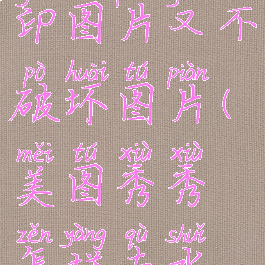 印图片又不
pò huài tú piàn
破坏图片(
měi tú xiù xiù
美图秀秀
zěn yàng qù shuǐ
怎样去水